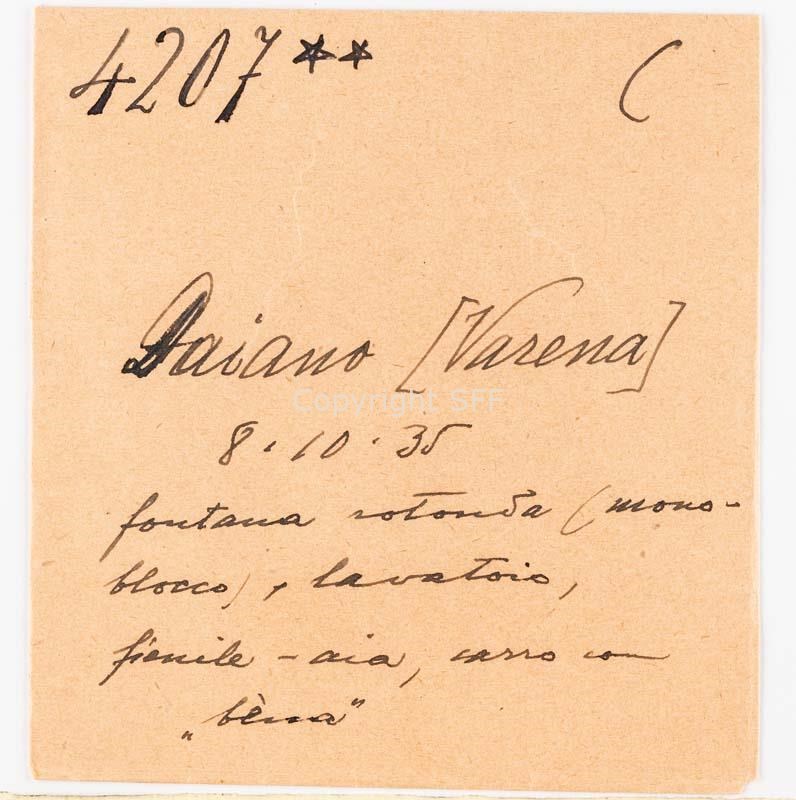 4207** C
Daiano [Varena]
Copyright SFF
8.10.35
fontana rotonda (mono-
blocco), lavatoio,
fienile - aia, carro con
„bèna"